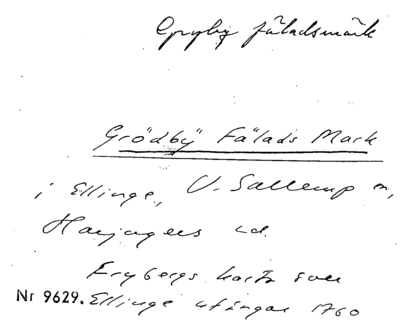 fäladsmark
Grödby Fälads Mark
i Ellinge, V. Sallerup sn,
Harjagers hd.
Frybergs karta över
Nr 9629. Ellinge utängar 1760